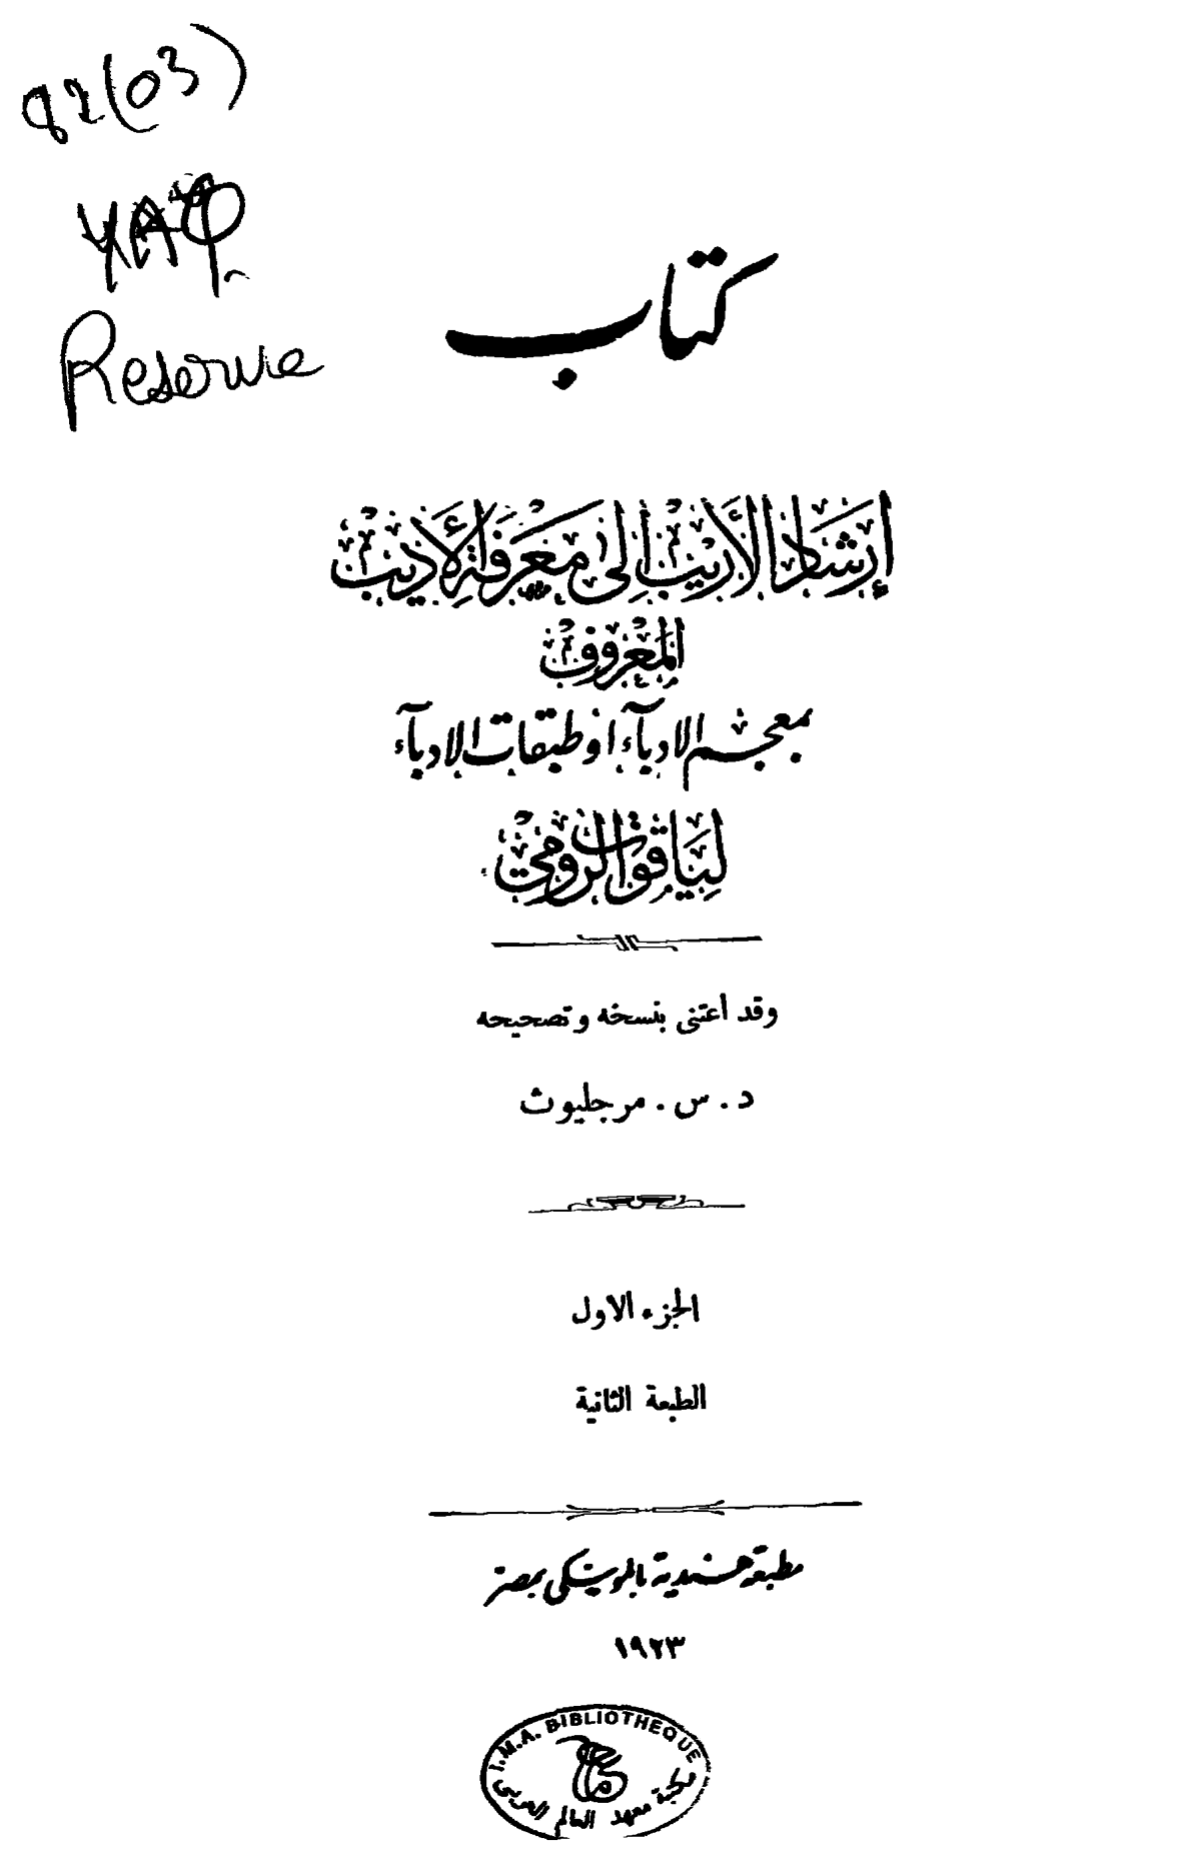 82(03)
YAQ
Reserve
كتاب
إرشاد الأريب إلى معرفة الأديب
المعروف
بمعجم الادبآء او طبقات الادبآء
لياقوت الرومي
وقد اعتنى بنسخه وتصحيحه
د . س . مرجليوث
الجزء الاول
الطبعة الثانية
مطبعة هندية بالموسكى بمصر
١٩٢٣
I.M.A. BIBLIOTHEQUE
مكتبة معهد العالم العربي